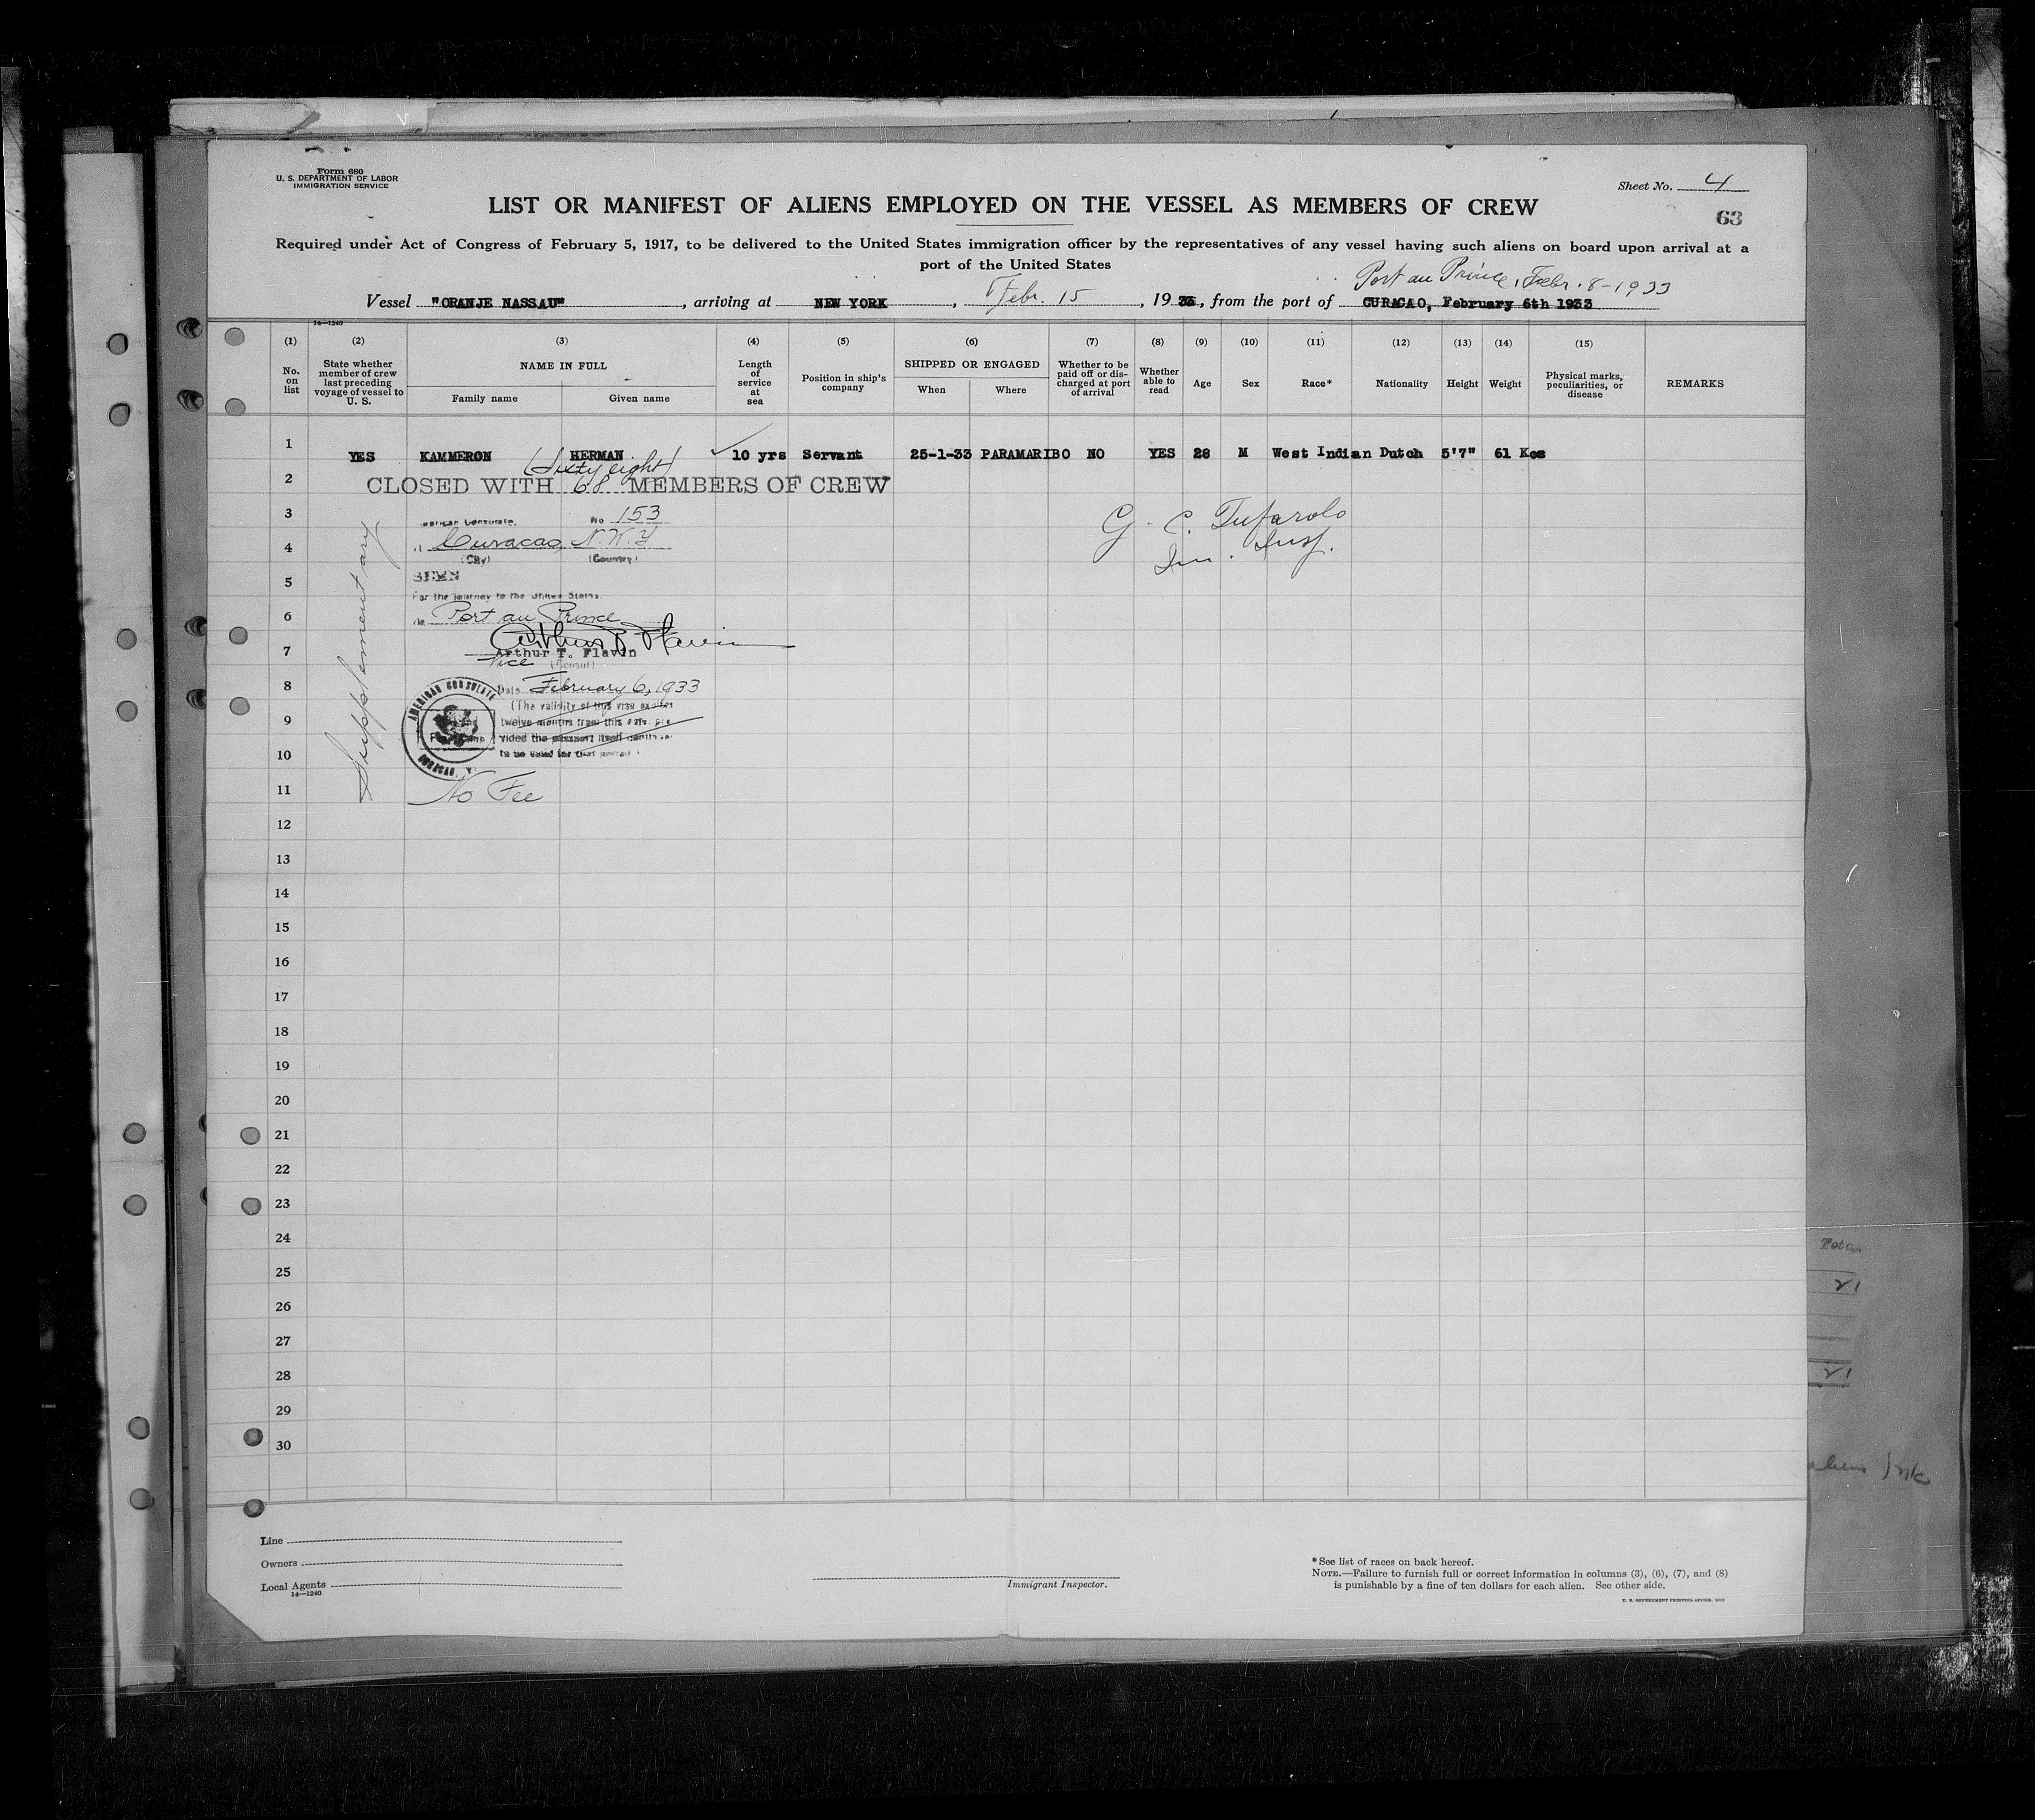 Form 680
U. S. DEPARTMENT OF LABOR
IMMIGRATION SERVICE
Sheet No. 4
LIST OR MANIFEST OF ALIENS EMPLOYED ON THE VESSEL AS MEMBERS OF CREW
63
Required under Act of Congress of February 5, 1917, to be delivered to the United States immigration officer by the representatives of any vessel having such aliens on board upon arrival at a
port of the United States
Port au Prince, Febr. 8-1933
Vessel "ORANJE NASSAU", arriving at NEW YORK, Febr. 15, 1933, from the port of CURACAO, February 6th 1933
14—1240
(1) (2) (3) (4) (5) (6) (7) (8) (9) (10) (11) (12) (13) (14) (15)
No. on list
State whether member of crew last preceding voyage of vessel to U. S.
NAME IN FULL
Family name
Given name
Length of service at sea
Position in ship's company
SHIPPED OR ENGAGED
When
Where
Whether to be paid off or discharged at port of arrival
Whether able to read
Age
Sex
Race*
Nationality
Height
Weight
Physical marks, peculiarities, or disease
REMARKS
1 YES KAMMERON HERMAN 10 yrs Servant 25-1-33 PARAMARIBO NO YES 28 M West Indian Dutch 5'7" 61 Kos
(Sixty eight)
2 CLOSED WITH 68 MEMBERS OF CREW
3 American Consulate, No 153
G. C. Tufarolo
4 Curacao, N.W.I
Im. Insp.
(City) (Country)
5 SEEN
For the journey to the United States.
6 via Port au Prince
7 Arthur T. Flavin
Vice (Consul)
8 Date February 6, 1933
(The validity of this visa expires
9 twelve months from this date, pro
vided the passport itself continues
10 to be valid for that period
AMERICAN CONSULATE
CURACAO, W.
11 No Fee
Supplementary
12
13
14
15
16
17
18
19
20
21
22
23
24
25
26
27
28
29
30
21
21
Line
Owners
Local Agents
14—1240
Immigrant Inspector.
*See list of races on back hereof.
NOTE.—Failure to furnish full or correct information in columns (3), (6), (7), and (8)
is punishable by a fine of ten dollars for each alien. See other side.